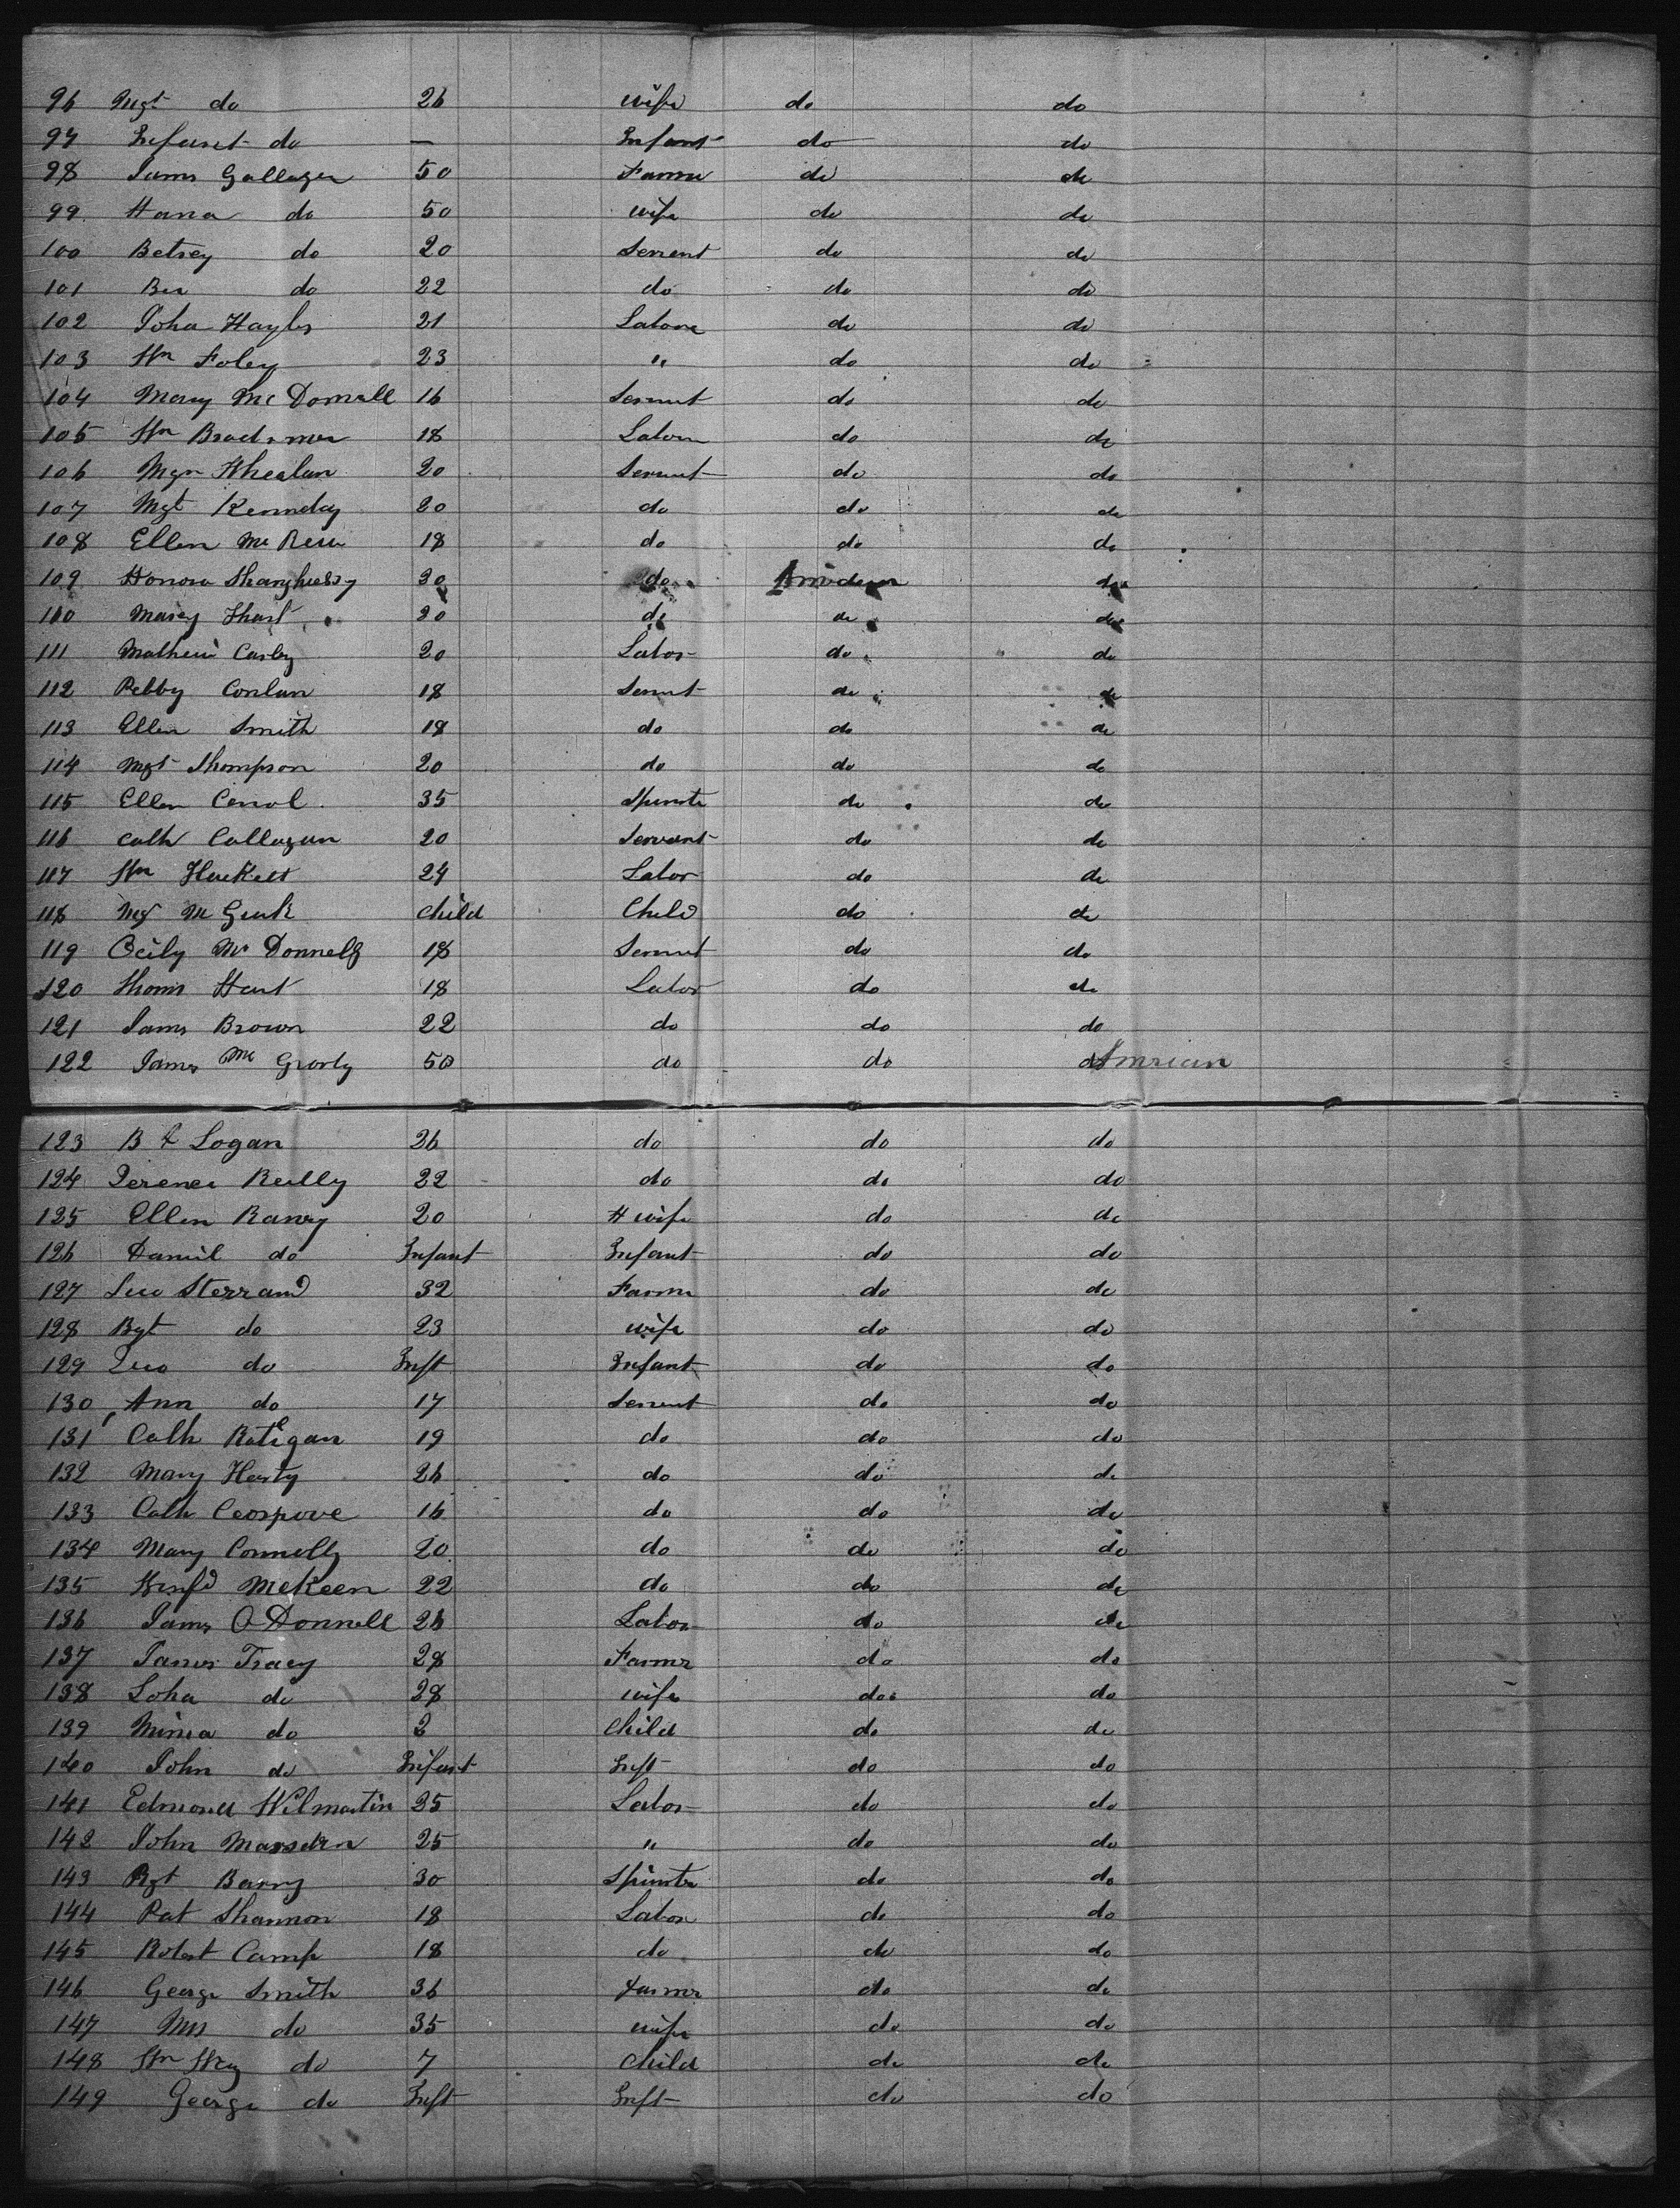 96 Mgt do 26 wife do do
97 Infant do — Infant do do
98 James Gallager 50 Farmr do do
99 Hana do 50 wife do do
100 Betsey do 20 Servent do do
101 do 22 do do do
102 John Hayles 21 Labour do do
103 Wm Foley 23 " do do
104 Mary Mc Donnall 16 Servnt do do
105 Wm 18 Labour do do
106 Whealan 20 Servnt do do
107 Mgt Kenneday 20 do do do
108 Ellen Mc 18 do do do
109 Honora 30 do do
110 Marey 20 do do do
111 Mathew 20 Labor do do
112 Conlan 18 Servnt do do
113 Ellen Smith 18 do do do
114 Mgt Thompson 20 do do do
115 Ellen 35 Spinstr do do
116 Cath Callagan 20 Servant do do
117 Wm Hackett 24 Labor do do
118 Mgt Mc child Child do do
119 Cecily Mc Donnell 18 Servnt do do
120 Thoms Hart 18 Labor do do
121 James Brown 22 do do do
122 James Mc 50 do do do
123 Logan 26 do do do
124 Terence Reilly 22 do do do
125 Ellen 20 H wife do do
126 Daniel do Infant Infant do do
127 32 Farmr do do
128 Bgt do 23 wife do do
129 do Inft Infant do do
130 Ann do 17 Servent do do
131 Cath Ratigan 19 do do do
132 Mary 26 do do do
133 Cath 16 do do do
134 Mary Connolly 20 do do do
135 McKeen 22 do do do
136 James O Donnell 26 Labor do do
137 James Tracy 28 Farmr do do
138 do 28 wife do do
139 do 2 Child do do
140 John do Infant Inft do do
141 Edmond 25 Labor do do
142 John Marsden 25 " do do
143 Barry 30 Spinstr do do
144 Pat Shannon 18 Labor do do
145 Robert Camp 18 do do do
146 George Smith 36 Farmr do do
147 Mrs do 35 wife do do
148 Wm do 7 Child do do
149 George do Inft Inft do do